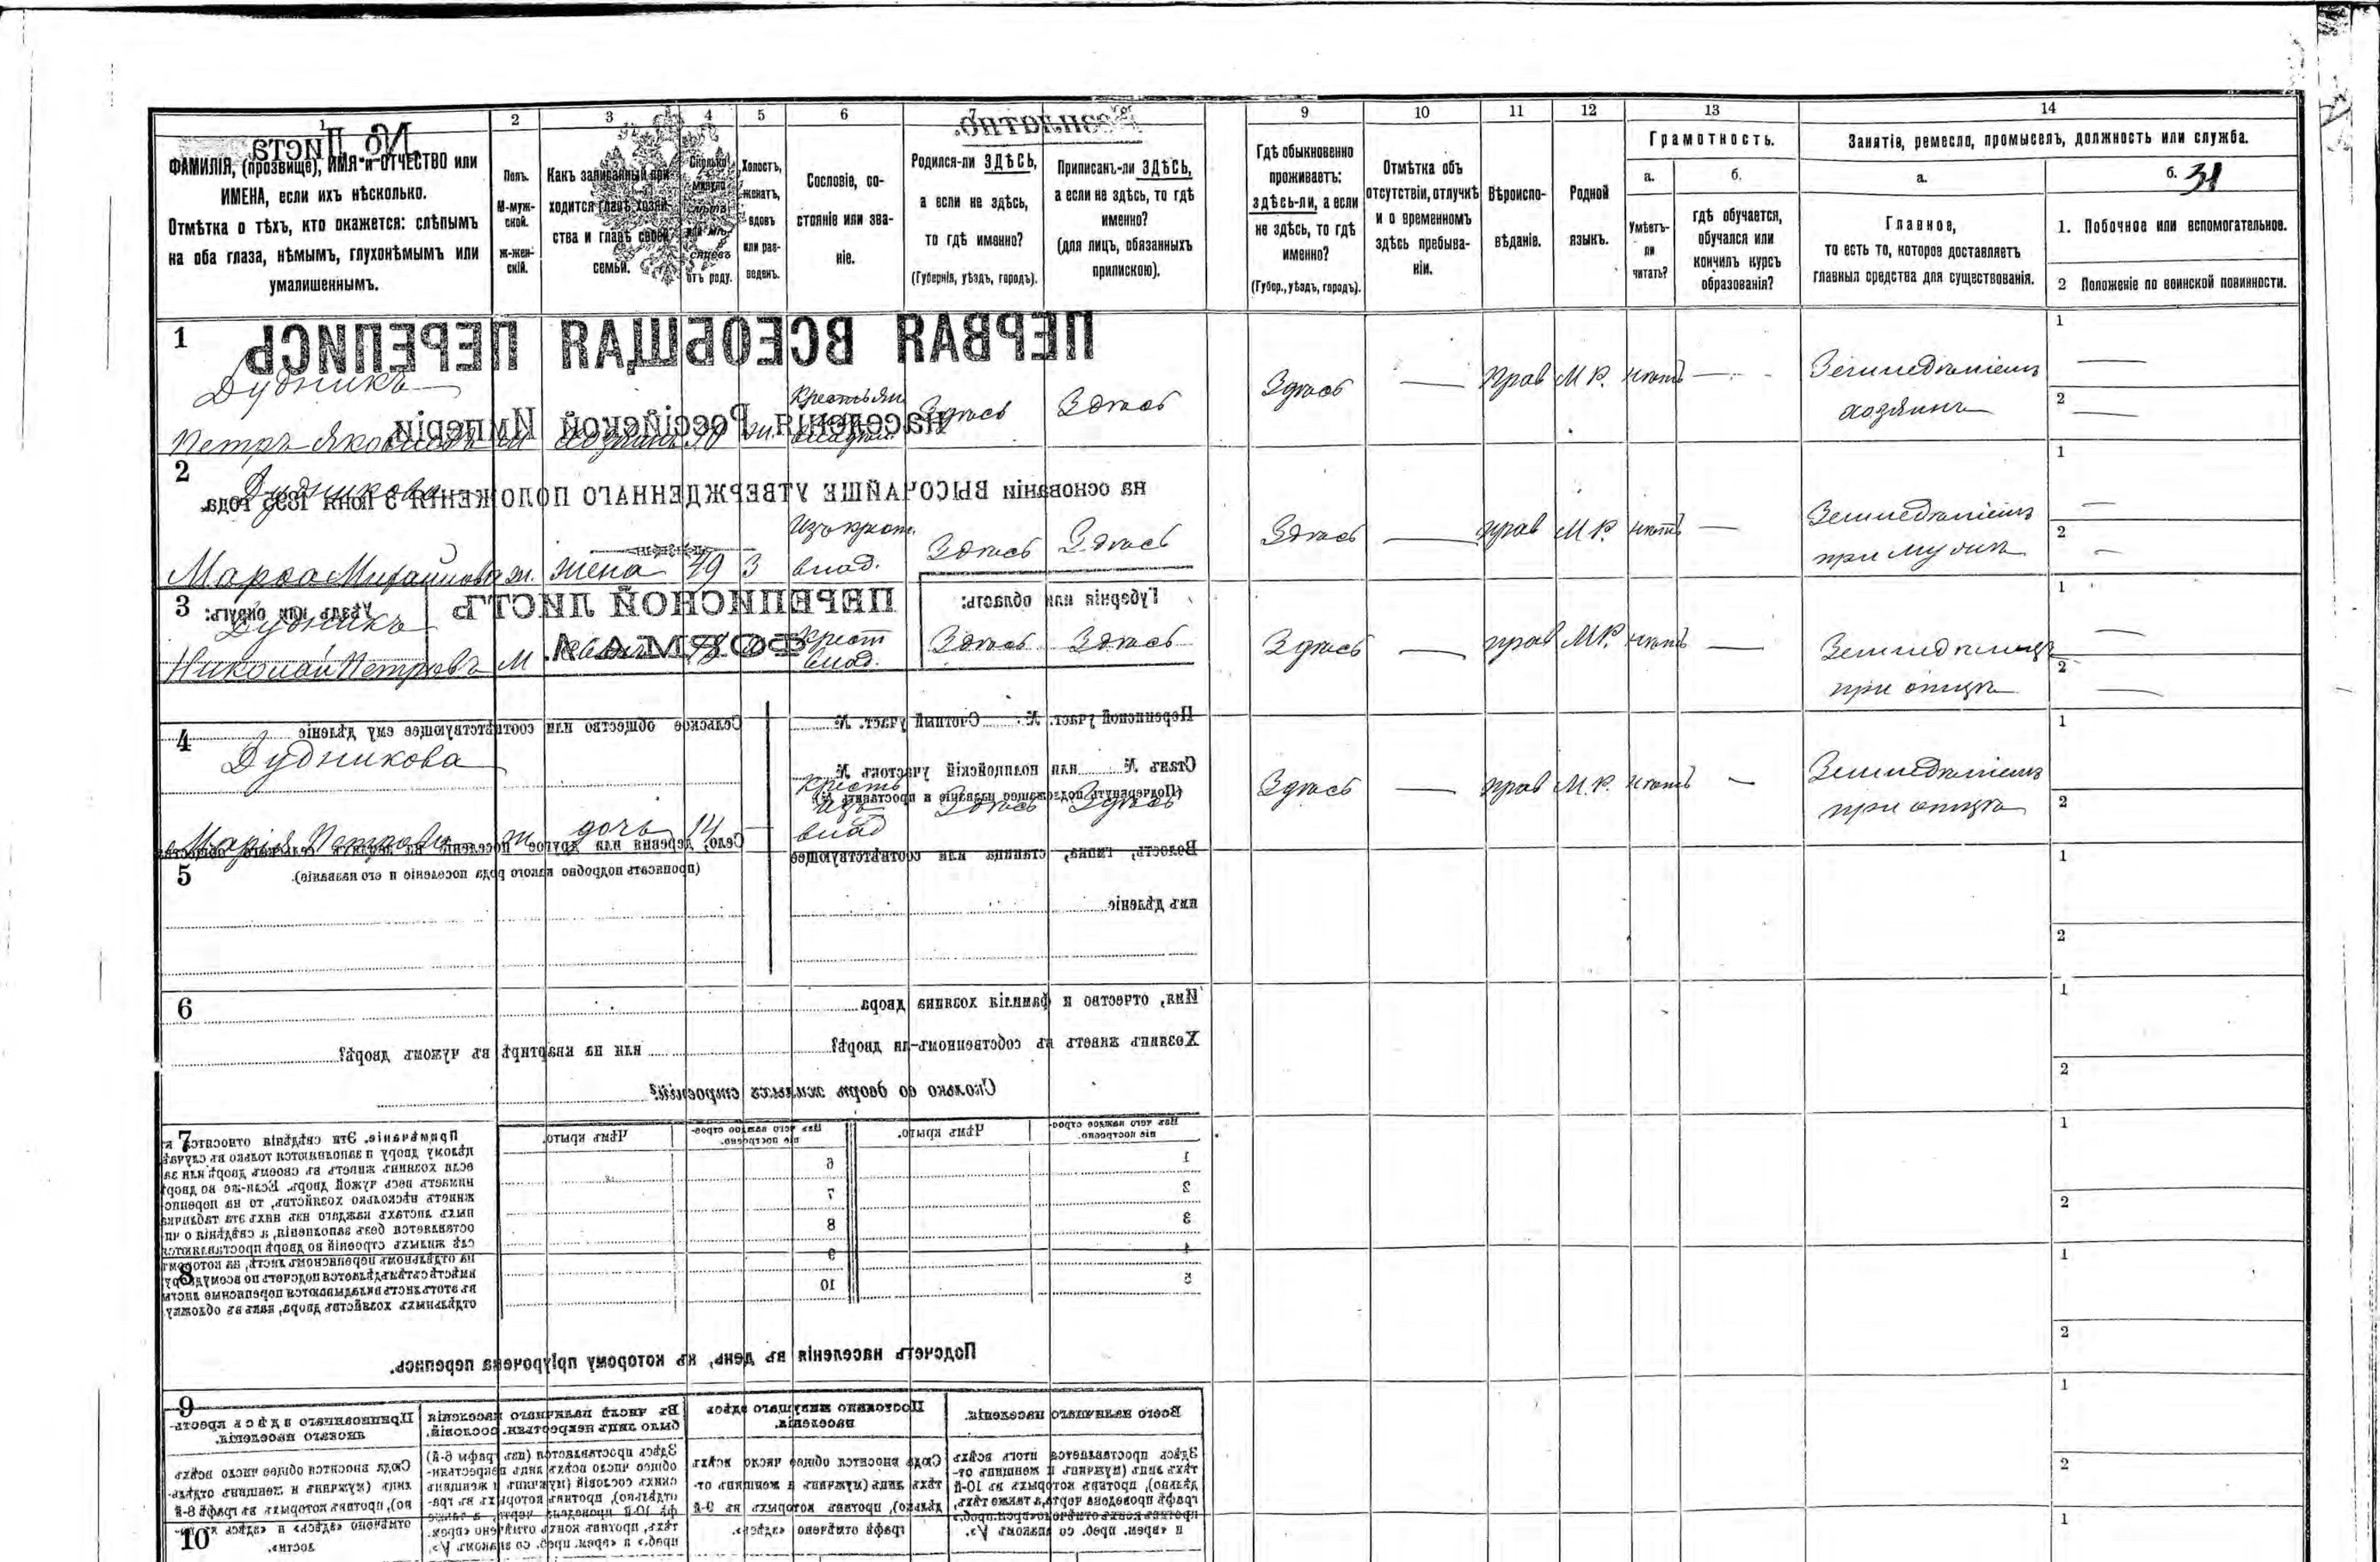 1 2 3 4 5 6 7 9 10 11 12 13 14
№ Листа
ФАМИЛІЯ, (прозвище), ИМЯ и ОТЧЕСТВО или
ИМЕНА, если ихъ нѣсколько.
Отмѣтка о тѣхъ, кто окажется: слѣпымъ
на оба глаза, нѣмымъ, глухонѣмымъ или
умалишеннымъ.
Полъ.
М-муж-
ской.
ж-жен-
скій.
Какъ записанный при-
ходится главѣ хозяй-
ства и главѣ своей
семьи.
Сколько
минуло
лѣтъ
или мѣ-
сяцевъ
отъ роду.
Холостъ,
женатъ,
вдовъ
или раз-
веденъ.
Сословіе, со-
стояніе или зва-
ніе.
Безплатно.
Родился-ли ЗДѢСЬ,
а если не здѣсь,
то гдѣ именно?
(Губернія, уѣздъ, городъ).
Приписанъ-ли ЗДѢСЬ,
а если не здѣсь, то гдѣ
именно?
(для лицъ, обязанныхъ
припискою).
Гдѣ обыкновенно
проживаетъ:
здѣсь-ли, а если
не здѣсь, то гдѣ
именно?
(Губер., уѣздъ, городъ).
Отмѣтка объ
отсутствіи, отлучкѣ
и о временномъ
здѣсь пребыва-
ніи.
Вѣроиспо-
вѣданіе.
Родной
языкъ.
Грамотность.
а.
Умѣетъ-
ли
читать?
б.
гдѣ обучается,
обучался или
кончилъ курсъ
образованія?
Занятіе, ремесло, промыселъ, должность или служба.
а.
Главное,
то есть то, которое доставляетъ
главныя средства для существованія.
б. 31
1. Побочное или вспомогательное.
2 Положеніе по воинской повинности.
ПЕРВАЯ ВСЕОБЩАЯ ПЕРЕПИСЬ
населенія Россійской Имперіи
на основаніи ВЫСОЧАЙШЕ УТВЕРЖДЕННАГО ПОЛОЖЕНІЯ 5 Іюня 1895 года.
1 Дудникъ
Петръ Яковлевъ м хозяинъ Крестьян. Здѣсь Здѣсь Здѣсь — прав М Р. нѣтъ — Земледѣліемъ хозяинъ 1 — 2 —
2 Дудникова
Марѳа Михайлова ж. жена 49 3 Изъ крест. влад. Здѣсь Здѣсь Здѣсь — прав М Р. нѣтъ — Земледѣліемъ при мужѣ 1 — 2 —
ПЕРЕПИСНОЙ ЛИСТЪ
ФОРМА А
Губернія или область:
Уѣздъ или округъ:
3 Дудникъ
Николай Петровъ М крест влад. Здѣсь Здѣсь Здѣсь — прав М Р. нѣтъ — при отцѣ 1 — 2 —
Переписной участ. № Счетный участ. №
Сельское общество или соотвѣтствующее ему дѣленіе
Станъ № или полицейскій участокъ №
(Подчеркнуть подходящее названіе и проставить №)
4 Дудникова
Марія Петрова ж дочь 14 — влад Здѣсь Здѣсь Здѣсь — прав М. Р. нѣтъ — Земледѣліемъ при отцѣ 1 2
Волость, гмина, станица или соотвѣтствующее
имъ дѣленіе
Село, деревня или другое поселеніе
(прописать подробно какого рода поселеніе и его названіе).
5 1 2
6 1 2
Имя, отчество и фамилія хозяина двора
Хозяинъ живетъ въ собственномъ-ли дворѣ? или на квартирѣ въ чужомъ дворѣ?
Сколько во дворѣ жилыхъ строеній?
Изъ чего каждое строе-
ніе построено. Чѣмъ крыто. Изъ чего каждое строе-
ніе построено. Чѣмъ крыто.
1 6
2 7
3 8
4 9
5 10
7 1 2
Примѣчаніе. Эти свѣдѣнія относятся къ
цѣлому двору и заполняются только въ случаѣ
если хозяинъ живетъ въ своемъ дворѣ или за-
нимаетъ весь чужой дворъ. Если-же во дворѣ
живетъ нѣсколько хозяйствъ, то на перепис-
ныхъ листахъ каждаго изъ нихъ эта табличка
8 1 2
Подсчетъ населенія въ день, къ которому пріурочена перепись.
9 1 2
Всего наличнаго населенія.
Постоянно живущаго здѣсь
населенія.
Въ числѣ наличнаго населенія
было лицъ некрестьян. сословій.
Приписаннаго здѣсь кресть-
янскаго населенія.
Здѣсь проставляется итогъ всѣхъ
тѣхъ лицъ (мужчинъ и женщинъ от-
дѣльно), противъ которыхъ въ 10-й
графѣ проведена черта, а также тѣхъ,
и «врем. преб. со знакомъ V».
Сюда вносится общее число всѣхъ
тѣхъ лицъ (мужчинъ и женщинъ от-
дѣльно), противъ которыхъ въ 9-й
графѣ отмѣчено «здѣсь».
Здѣсь проставляется (изъ графы 6-й)
общее число всѣхъ лицъ некрестьян-
скихъ сословій (мужчинъ и женщинъ
отдѣльно), противъ которыхъ въ гра-
фѣ 10-й проведена черта, а также
тѣхъ, противъ коихъ отмѣчено «врем.
преб.» и «врем. преб. со знакомъ V».
Сюда вносится общее число всѣхъ
лицъ (мужчинъ и женщинъ отдѣль-
но), противъ которыхъ въ графѣ 8-й
отмѣчено «здѣсь»
10 1